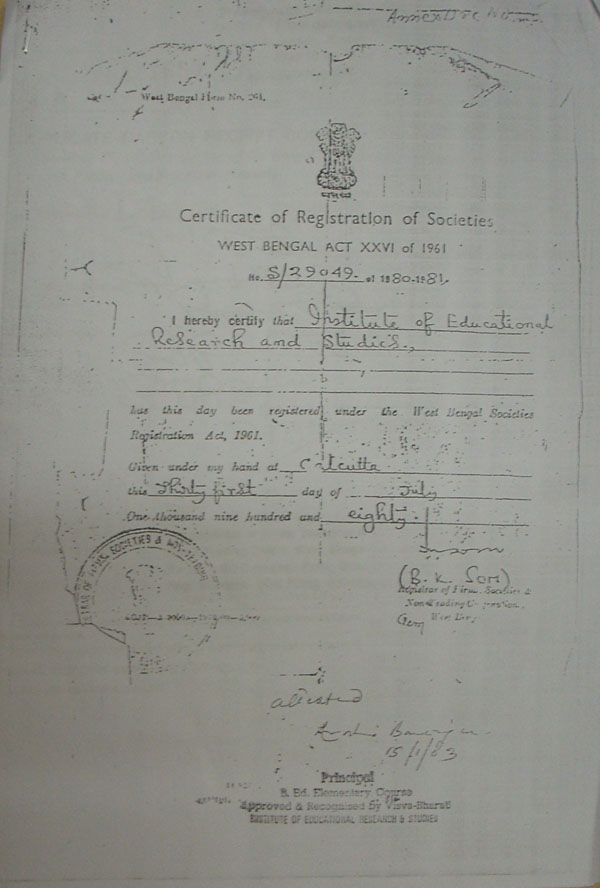 Annexure No.
West Bengal Form No. 261.
Certificate of Registration of Societies
WEST BENGAL ACT XXVI of 1961
No. S/29049. of 1980-1981.
I hereby certify that Institute of Educational
Research and Studies.,
has this day been registered under the West Bengal Societies
Registration Act, 1961.
Given under my hand at Calcutta
this Thirty first day of July
One thousand nine hundred and eighty.
(B. K. Som)
Registrar of Firms, Societies &
Non-Trading Corporation.
West Bengal
SOCIETIES & NON-TRADING
attested
15/1/83
Principal
B. Ed. Elementary Course
Approved & Recognised by Visva-Bharati
INSTITUTE OF EDUCATIONAL RESEARCH & STUDIES